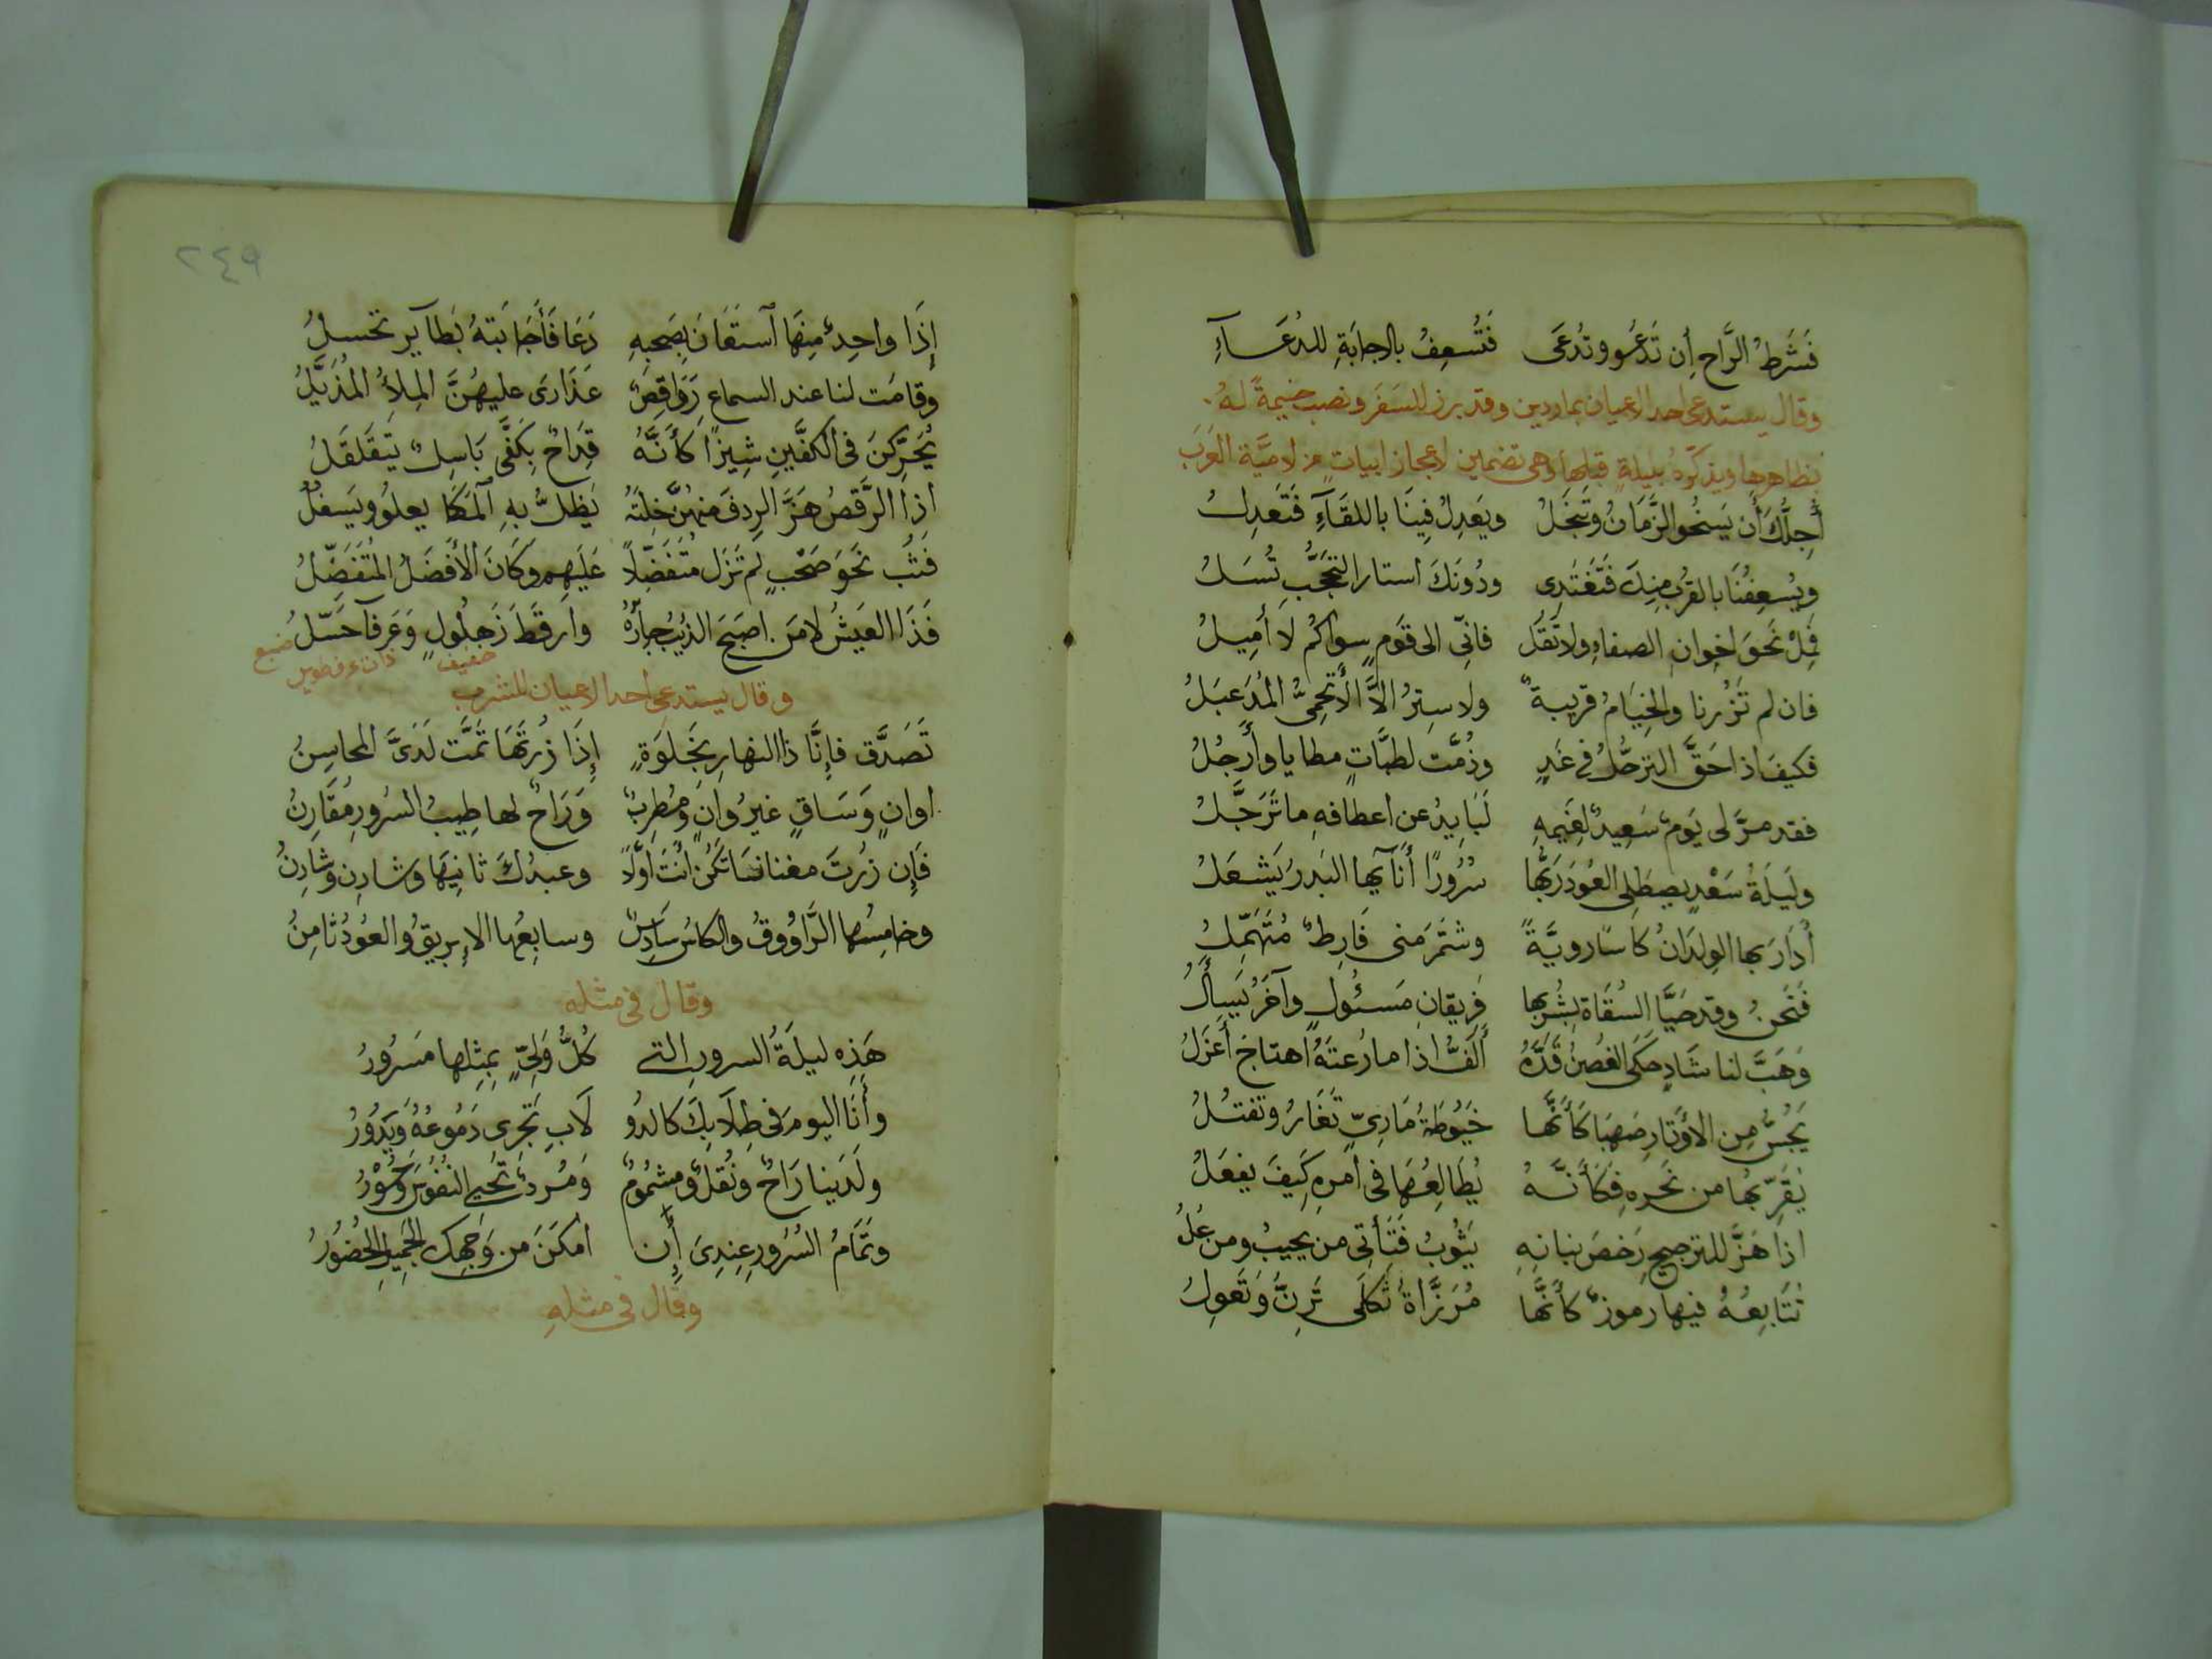 فَشَرطُ الرَّاحِ أن تَدعُو وتُدعَى فَتُسعِفُ بالاجابَةِ للدُعَآءِ
وقال يستدعى احد الاعيان بماردين وقد برز للسَفَر ونصب خيمةً لهُ
بظاهرها ويذكّرهُ بليلةٍ قبلها وهى تضمين لاعجاز ابياتٍ من لاميَّة العَرَب
أُجِلُّكَ أن يَسخُو الزَّمَانُ وتَبخَلُ ويَعدِلُ فِينَا باللقَآءِ فَتَعدِلُ
ويُسعِفُنَا بالقُربِ مِنكَ فَتَغتَدِى ودُونَكَ استار التحَجُّبِ تُسبَلُ
فَمِلْ نَحوَ اخوانِ الصفاءِ ولا تَقُل فانِّى الى قَومٍ سِواكُم لا أميلُ
فان لم تَزُرنا والخِيَامُ قريبةٌ ولا سِترُ الاَّ الأَتحَمِىُّ المُدَعبَلُ
فكيفَ اذا حَقَّ الترحُّلُ فى غَدٍ وزُمَّت لطيَّاتٍ مطايا وأرحُلُ
فقد مرَّ لى يَومٌ سَعِيدٌ لغَيمِهِ لَبَايِدُ عن اعطافهِ ما تُرَجَّلُ
ولَيلَةُ سَعْدٍ يصطَلِى العُودَ رَبُّها سُرُورًا أنَآيها البَدرُ يَشعَلُ
أدَارَ بها الوِلدَانُ كاسًا رويَّةً وشَمَّرَ منى فَارِطٌ مُتَمَهِّلُ
فَنَحنُ وقد حَيَّا السُقَاة بِشُربِها فريقانِ مَسئُولٍ وآخَرُ يَسأَلُ
وَهَبَّ لنا شَادٍ حَكَى الغُصنَ قَدُّهُ أَلَفُّ اذا ما رُعتَهُ اهتاجَ أعزَلُ
يَجُسُّ مِن الأوتَارِ صَهبًا كأَنَّها خُيُوطَةُ مَارِىٍّ تُغَارُ وتُفتَلُ
يُقَرِّبُها من نَحرِهِ فكَأنَّهُ يُطَالِعُهَا فى أمرهِ كَيفَ يفعَلُ
اذا هَزَّ للترجيحِ رَخصَ بنانِهِ يَثُوبُ فَتَأتى من تحيتُ ومن عَلُ
تُتَابِعُهُ فيها رموزٌ كأنَّها مُرَزَّاةٌ ثَكلَى تَرِنُّ وَتُعوِلُ
٢٤٩
إذَا واحِدٌ مِنهَا آستَعَانَ بِصَحبِهِ دَعَا فَأجَابَتهُ نَظاير نحسلُ
وقامَت لنا عند السماعِ رَوَاقِصٌ عَذَارَى عليهُنَّ المِلاَءُ المُذَيَّلُ
يُحَرِّكنَ فى الكفَّينِ شِيزًا كأنَّهُ قِدَاحٌ بِكَفَّى يَاسِرٍ يَتَقَلقَلُ
اذا الرَّقصُ هَزَّ الرِدفَ منهُنَّ خِلتَهُ يَظلُّ بهِ المُكَّا يعلُو ويَسفُلُ
فَثُب نَحوَ صَحبٍ لم تَزَل مُتَفَضِّلاً عَلَيهِم وكَانَ الأفَضَلُ المُتَفَضِّلُ
فَذَا العَيشُ لا مَن اصبَحَ الذِيبُ جارَهُ وارقَطَ زُهلُولٍ وَعَرفآ جَيأَلُ
خفيف ذات عرف طويل ضبع
وقال يستدعى احد الاعيان للشرب
تَصَدَّق فإنَّا ذا النهار بِخَلوَةٍ إذَا زُرتَهَا تَمَّت لَدَىَّ المحاسِنُ
اوانٍ وَسَاقٍ غيرُ وانٍ ومُطرِبٌ وَرَاحٌ لها طِيبُ السُرورِ مُقَارِنُ
فَإن زُرتَ مغنانا تَكُن أنتَ اوَّلاً وعبدُكَ ثانِيهَا وَشادٍ وشادِنُ
وخامِسُها الرَّاوُوقُ والكاسُ سادِسٌ وسابِعُها الإبريقُ والعُودُ ثامِنُ
وقال فى مثله
هَذِهِ ليلَةُ السرورِ التى كُلُّ وَلِىٍّ بِمِثلِها مَسرُورُ
وأنَا اليومَ فى طِلابِكَ كالدُو لَابِ تَجرِى دُمُوعُهُ وَيَدُورُ
ولَدَينا رَاحٌ ونُقلٌ ومشمُومٌ وَمُردٌ تُحيى النُفُوسَ وَحُورُ
وتَمَامُ السُرُورِ عِندِىَ إن امكَنَ من وَجهِكَ الجَمِيلِ الحُضُورُ
وقال فى مثلهِ